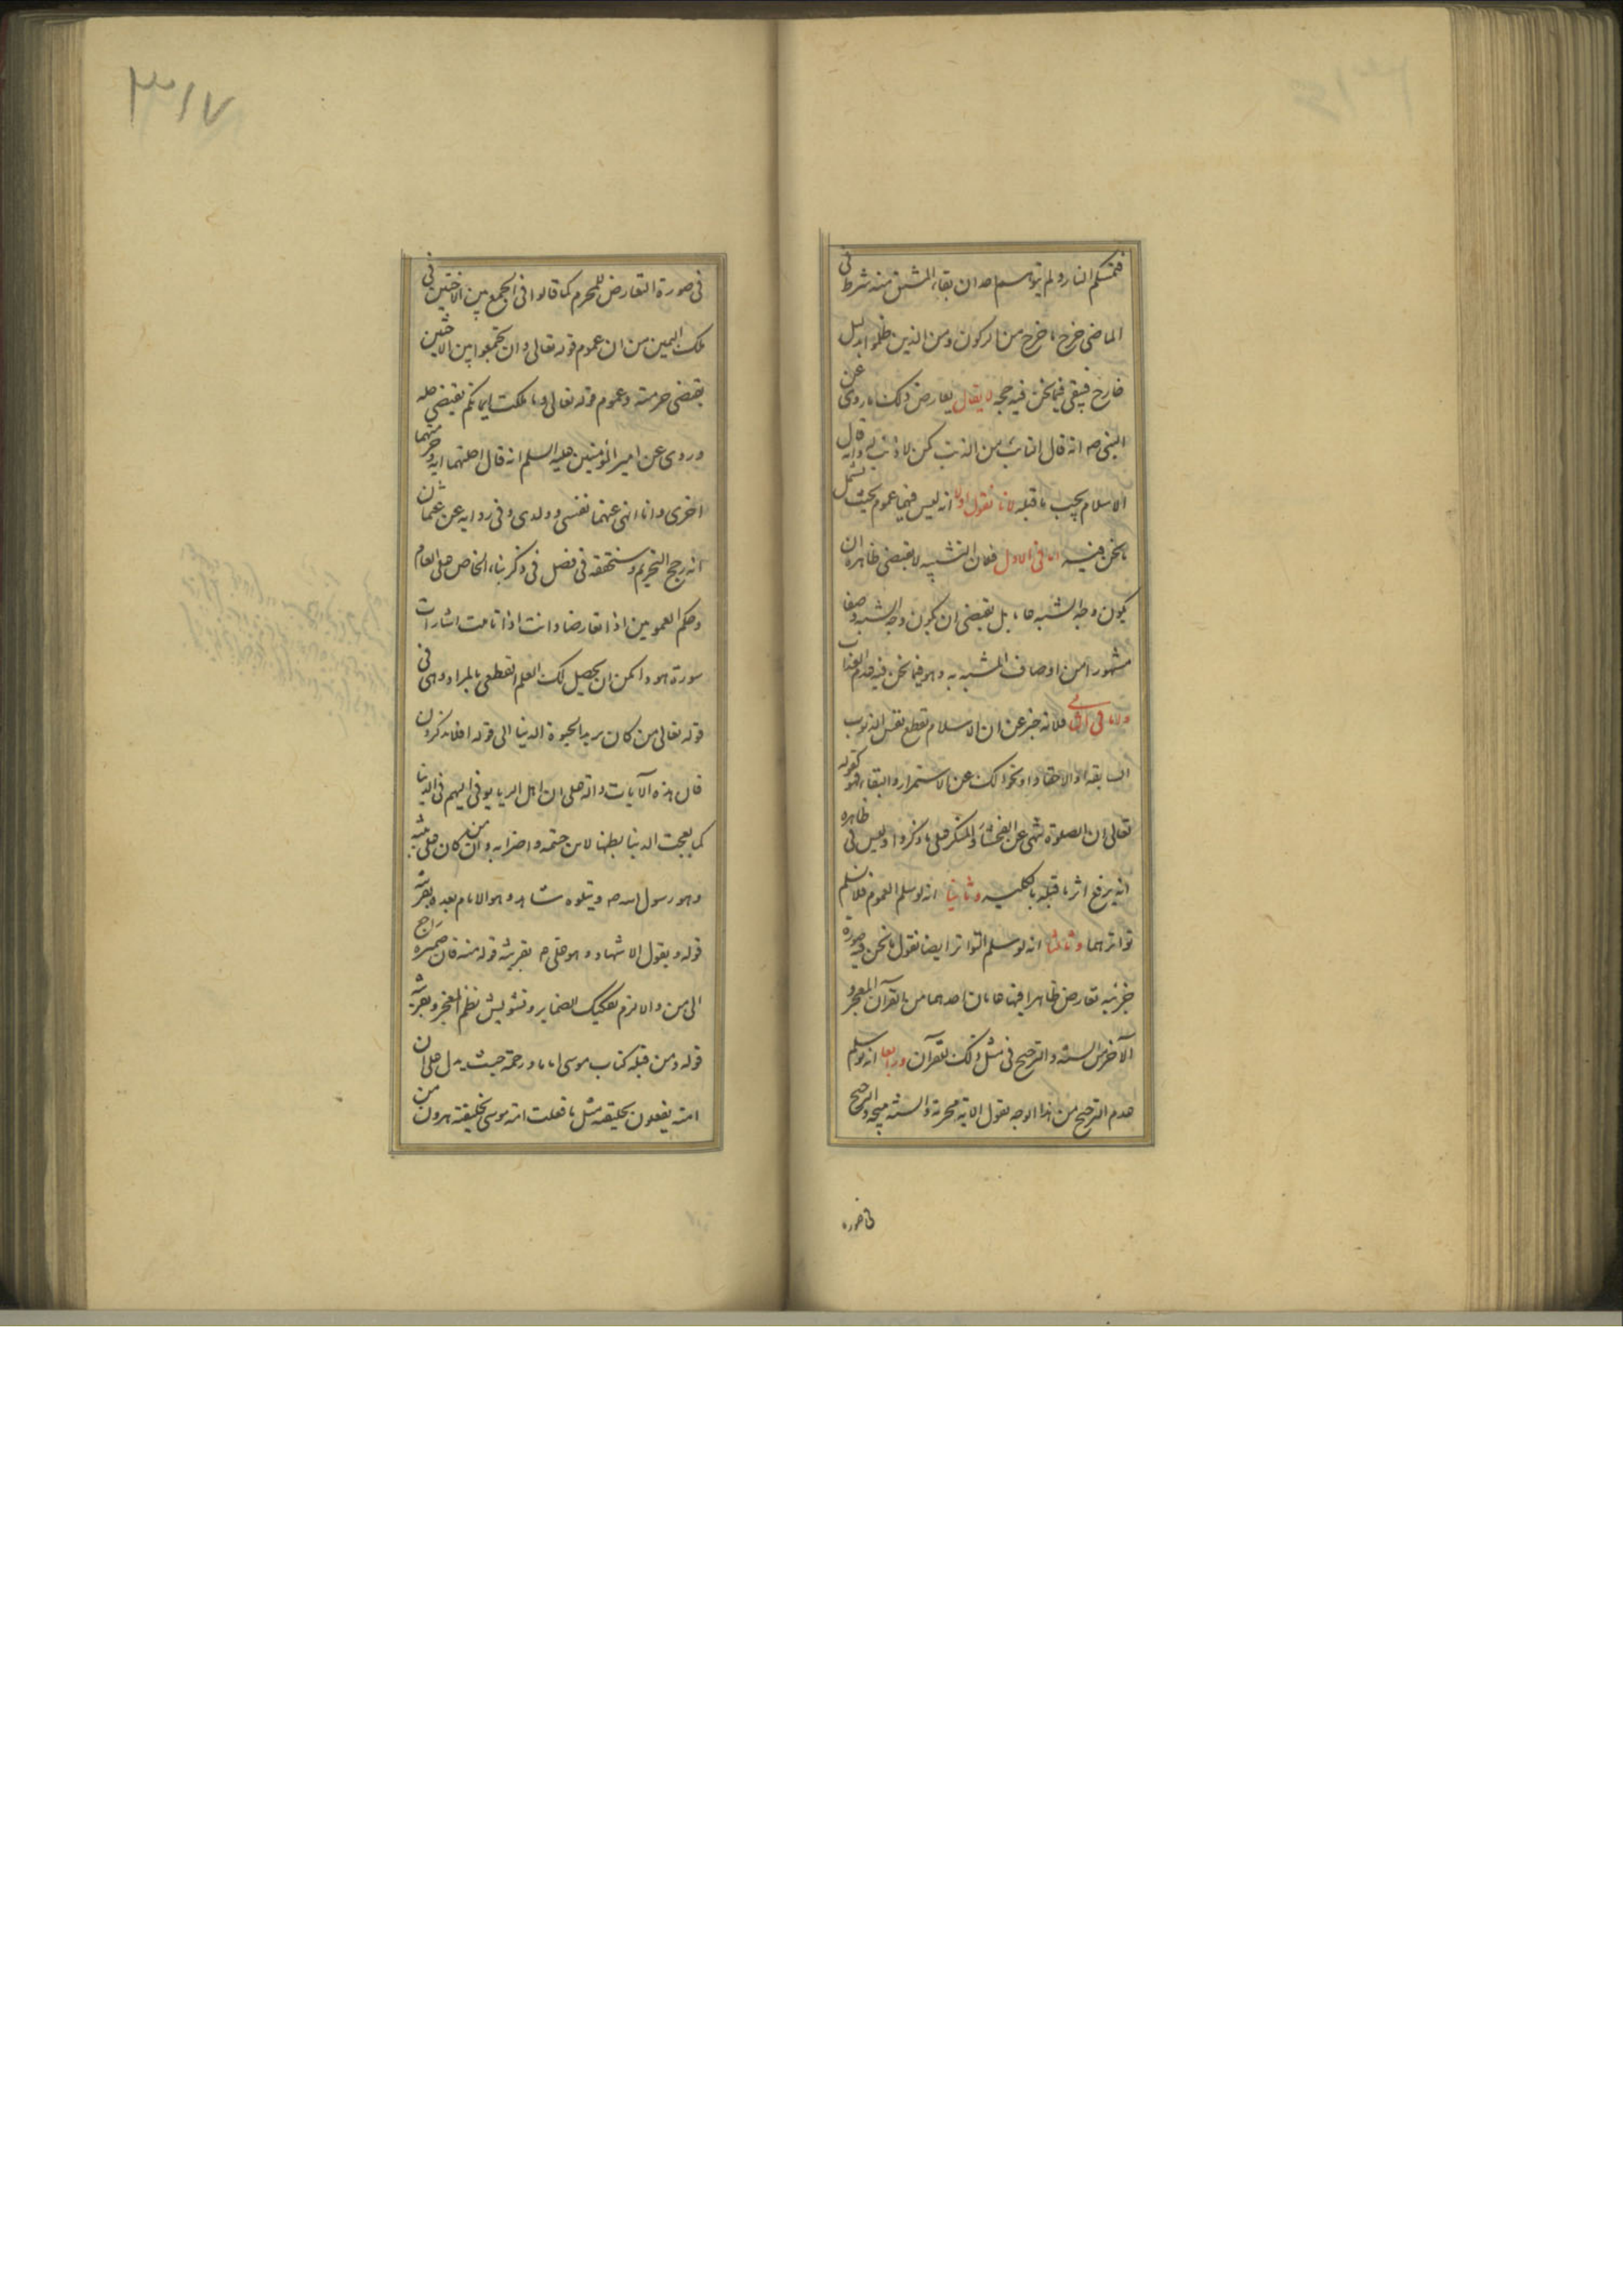 فتمسكم النار ولم يتوهم احد ان بقاء المشتق منه شرط فى
الماضى خرج ما خرج من الركون ومن الذين ظلموا بدليل
خارج فيبقى فيما نحن فيه حجه لا يقال يعارض ذلك ما روى عن
النبى صم انه قال التائب من الذنب كمن لا ذنب له وانه قال
الاسلام يجب ما قبله لانا نقول اولا انه ليس فيهما عموم بحيث يشمل
ما نحن فيه اما فى الاول فلان التشبيه لا يقتضى ظاهره ان
يكون وجه الشبه عاما بل يقتضى ان يكون وجه الشبه وصفا
مشهورا من اوصاف المشبه به وهو فيما نحن فيه عدم العذاب
واما فى الثانى فلانه خبر عن ان الاسلام تقطع نفس الذنوب
السابقه او الاحقاد او نحو ذلك عن الاستمرار والبقاء فهو كقوله
تعالى ان الصلوة تنهى عن الفحشاء والمنكر على ما ذكروا وليس فى ظاهره
انه يرفع اثر ما قبله بالكليه وثانيا انه لو سلم العموم فلا نسلم
تواترهما وثالثا انه لو سلم التواتر ايضا نقول ما نحن فيه صورة
جزئيه تعارض ظاهرا فيها عامان احدهما من القرآن المعجز و
الآخر من السنه والترجيح فى مثل ذلك للقرآن ورابعا انه لو سلم
عدم الترجيح من هذا الوجه نقول الايه محرمة والسنه مبيحه والترجيح
فى صورة
٣١٧
فى صورة التعارض للمحرم كما قالوا فى الجمع بين الاختين فى
ملك اليمين من ان عموم قوله تعالى وان تجمعوا بين الاختين
يقتضى حرمته وعموم قوله تعالى او ما ملكت ايمانكم يقتضى حله
وروى عن امير المؤمنين عليه السلم انه قال احلتهما ايه وحرمتهما
اخرى وانا انهى عنهما نفسى وولدى وفى روايه عن عثمان
انه رجح التحريم وستحققه فى فصل فى ذكر بناء الخاص على العام
وحكم العمومين اذا تعارضا وانت اذا تاملت اشارات
سورة هود امكن ان يحصل لك العلم القطعى بالمراد وهى فى
قوله تعالى من كان يريد الحيوة الدنيا الى قوله افلا تذكرون
فان هذه الآيات دالة على ان اهل الريا يوفى اليهم فى الدنيا
كما بعجت الدنيا بطنها لابن حنتمه واضرابه وان من كان على بينه
وهو رسول الله صم ويتلوه شاهد وهو الامام بعده بقرينة
قوله ويقول الاشهاد وهو على م بقرينة قوله منه فان ضميره راجع
الى من والا لزم تفكيك الضماير وتشويش نظم المعجز وبقرينة
قوله ومن قبله كتاب موسى اماما ورحمة حيث يدل على ان
امته يفعلون بخليفته مثل ما فعلت امة موسى بخليفته هرون من